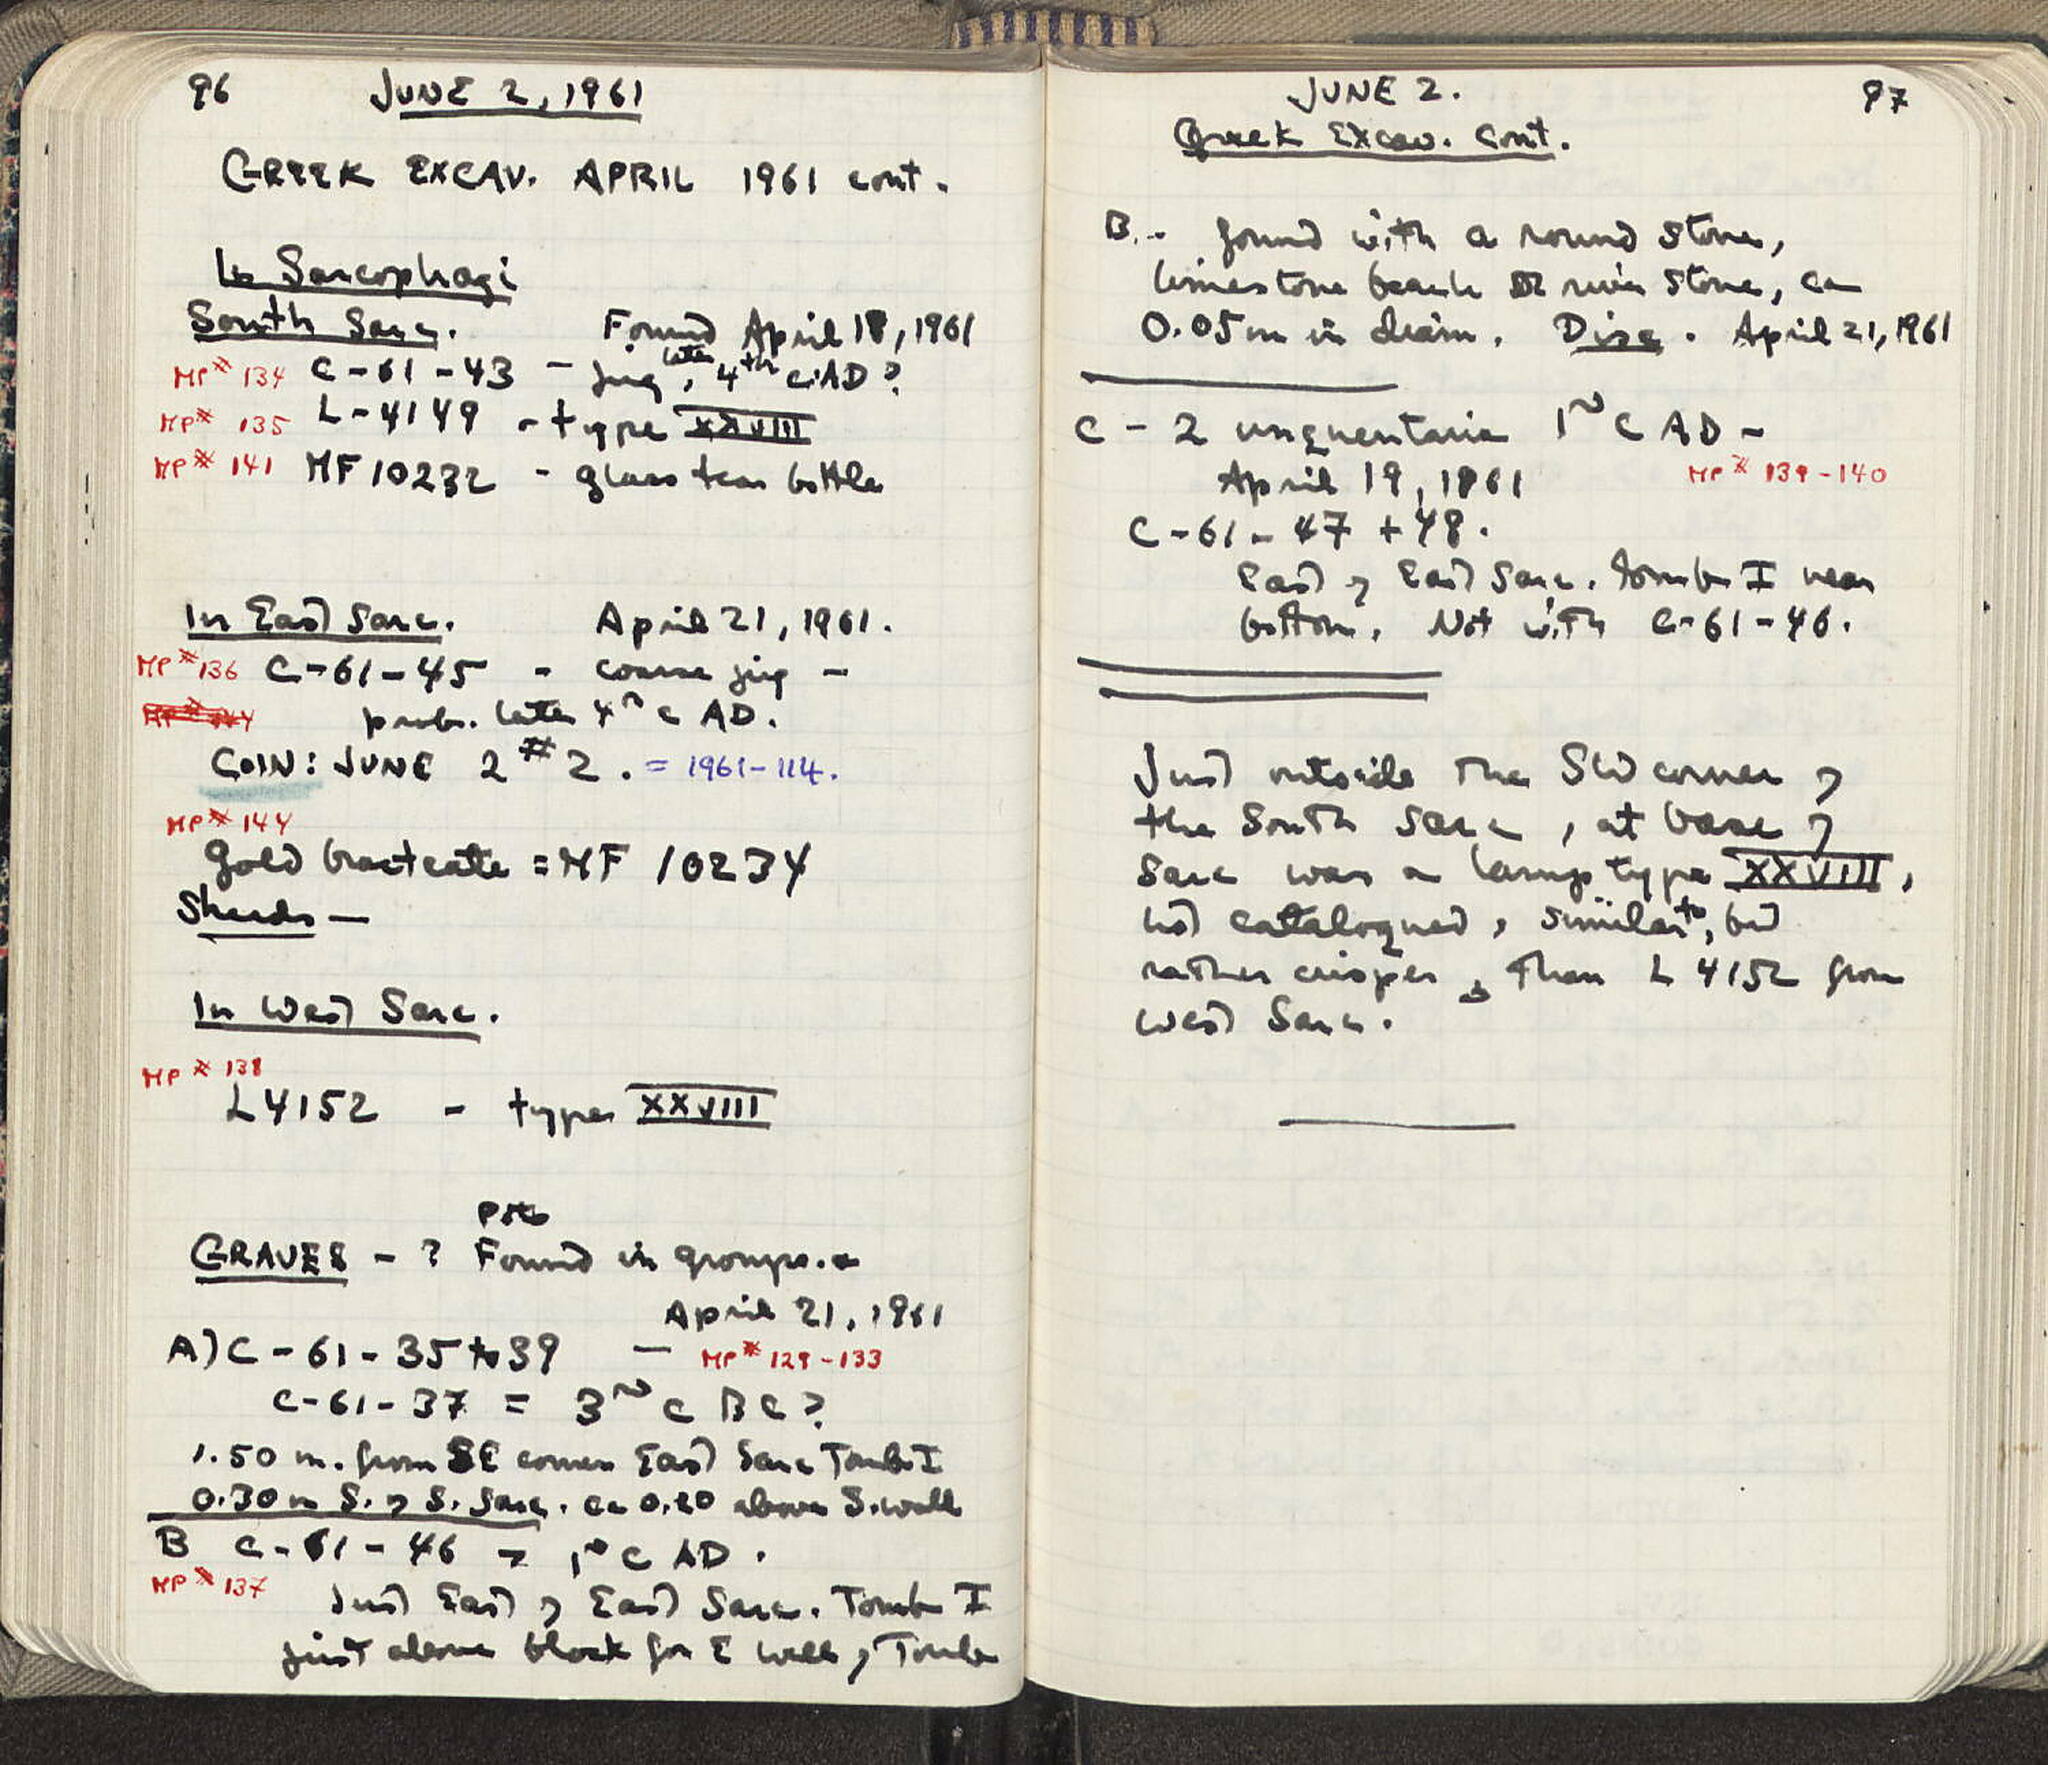 96 JUNE 2, 1961
GREEK EXCAV. APRIL 1961 cont.
In Sarcophagi
South Sarc. Found April 18, 1961
MP# 134 C-61-43 - jug, late 4th c. AD?
MP# 135 L-4149 - type XXVIII
MP# 141 MF 10232 - glass tear bottle
In East Sarc. April 21, 1961.
MP# 136 C-61-45 - coarse jug -
prob. late 4th c AD.
COIN: JUNE 2 #2. = 1961-114.
MP# 144
Gold bracteate = MF 10234
Sherds -
In West Sarc.
MP# 138
L 4152 - type XXVIII
Pots
GRAVES - ? Found in groups.
April 21, 1961
A) C-61-35 to 39 - MP# 129-133
C-61-37 = 3rd c BC?
1.50 m. from SE corner East Sarc Tomb I
0.30 m S. of S. Sarc. ca 0.20 above S. wall
B C-61-46 - 1st c AD.
MP# 137
Just East of East Sarc. Tomb I
just above block for E wall of Tomb
JUNE 2. 97
Greek Excav. cont.
B.- found with a round stone,
limestone beach or river stone, ca
0.05 m in diam. Disc. April 21, 1961
C - 2 unguentaria 1st c AD -
April 19, 1961 MP# 139-140
C-61-47 + 48.
East of East Sarc. Tomb I near
bottom. Not with C-61-46.
Just outside the SW corner of
the South Sarc, at base of
Sarc was a lamp type XXVIII,
not catalogued, similar to, but
rather crisper, than L 4152 from
West Sarc.